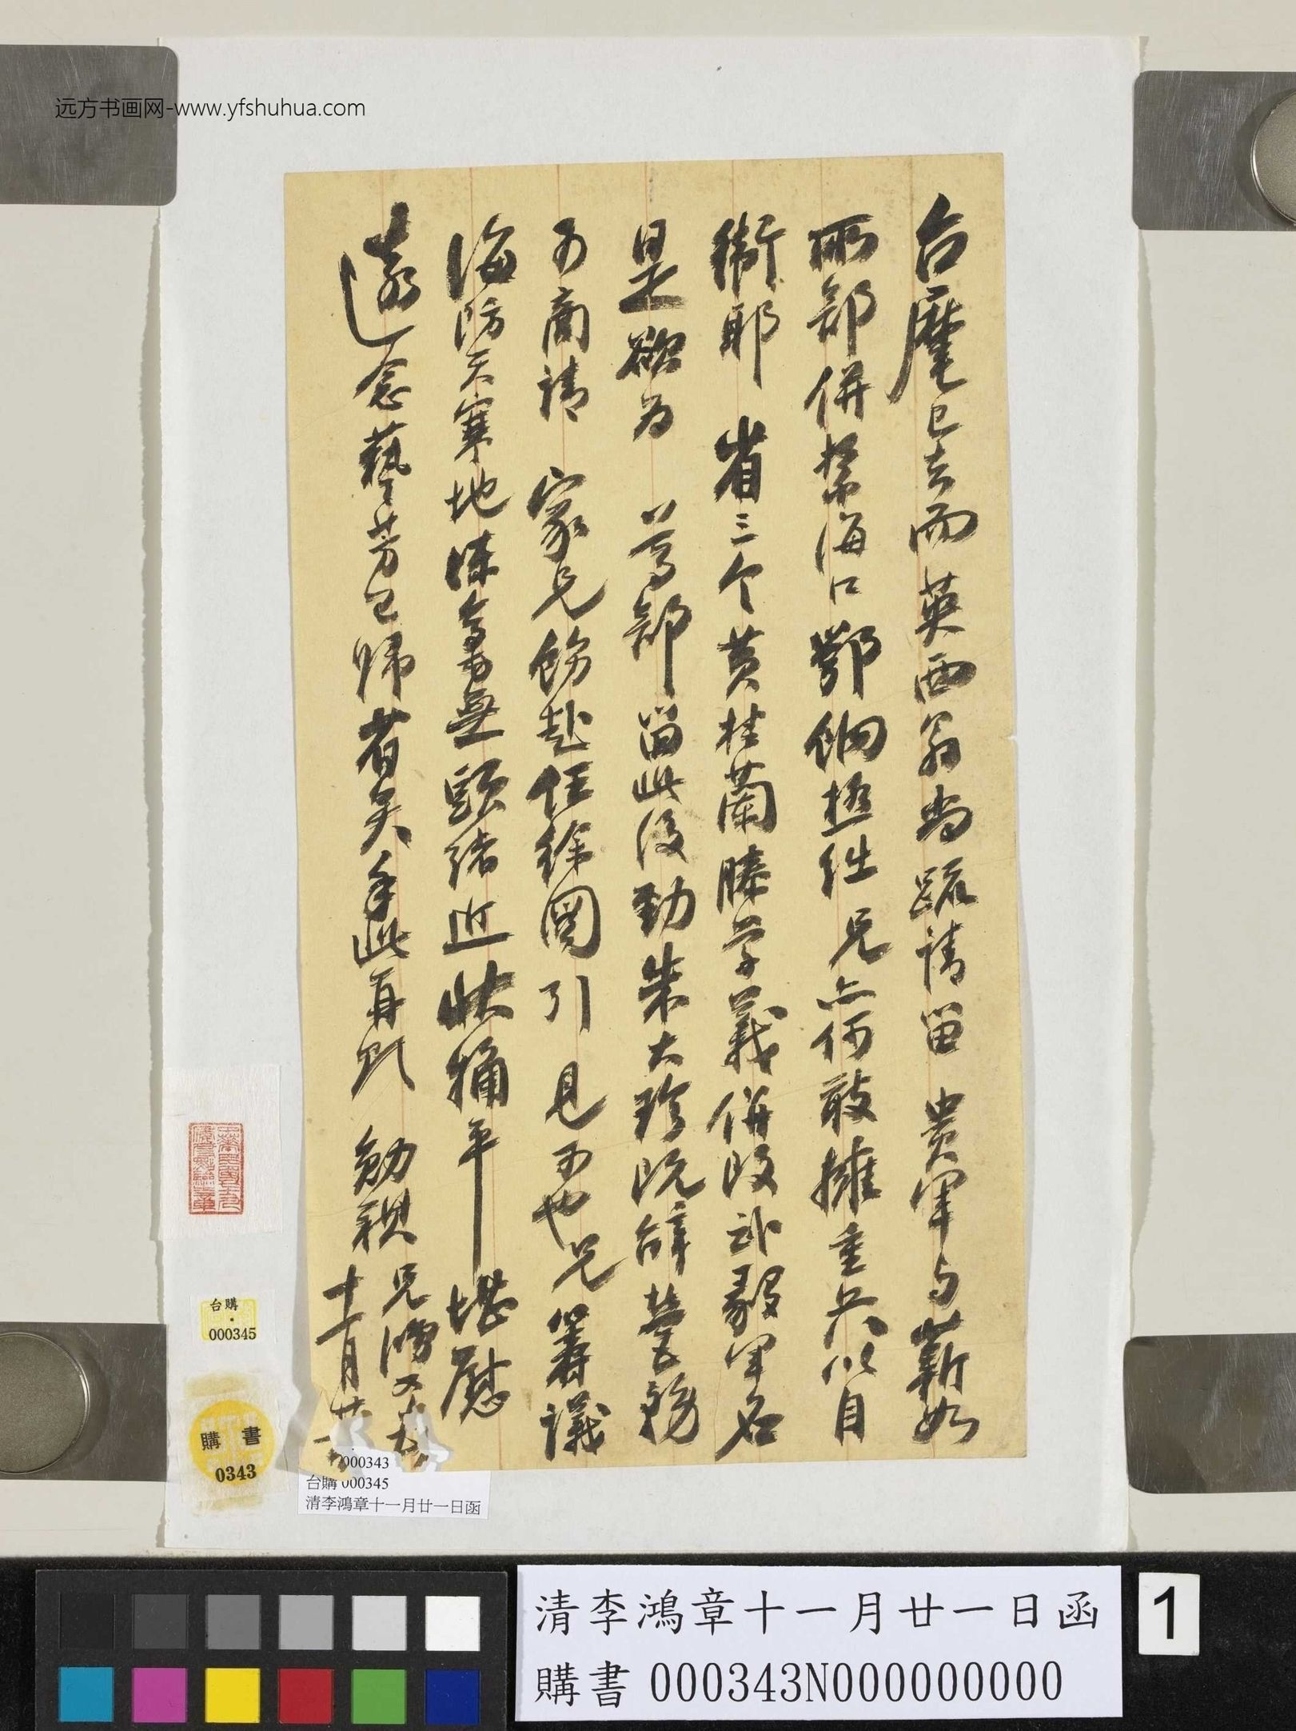 远方书画网-www.yfshuhua.com
台麾已去而英西翁尚疏請留 貴軍與蘄如
兩部併紮海口鄂餉極絀兄亦何敢擁重兵以自
衛耶 省三令黃桂蘭滕学義併歸武毅軍名
是欲為 尊部留此後勁朱大珍既辭營務
可商請 家兄飭赴任徐圖引 見可也兄籌議
海防天寒地凍毫無頭緒近狀稍平堪慰
遠念藝芳已歸省矣手此再賀 勛祺
兄鴻章
十一月廿一
台購
000345
購書
0343
000343
台購 000345
清李鴻章十一月廿一日函
清李鴻章十一月廿一日函
購書 000343N000000000
1